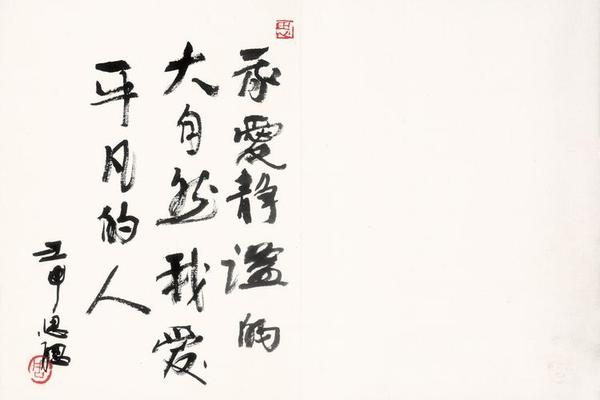 我愛静谧的
大自然我爱
平凡的人
壬申思聪